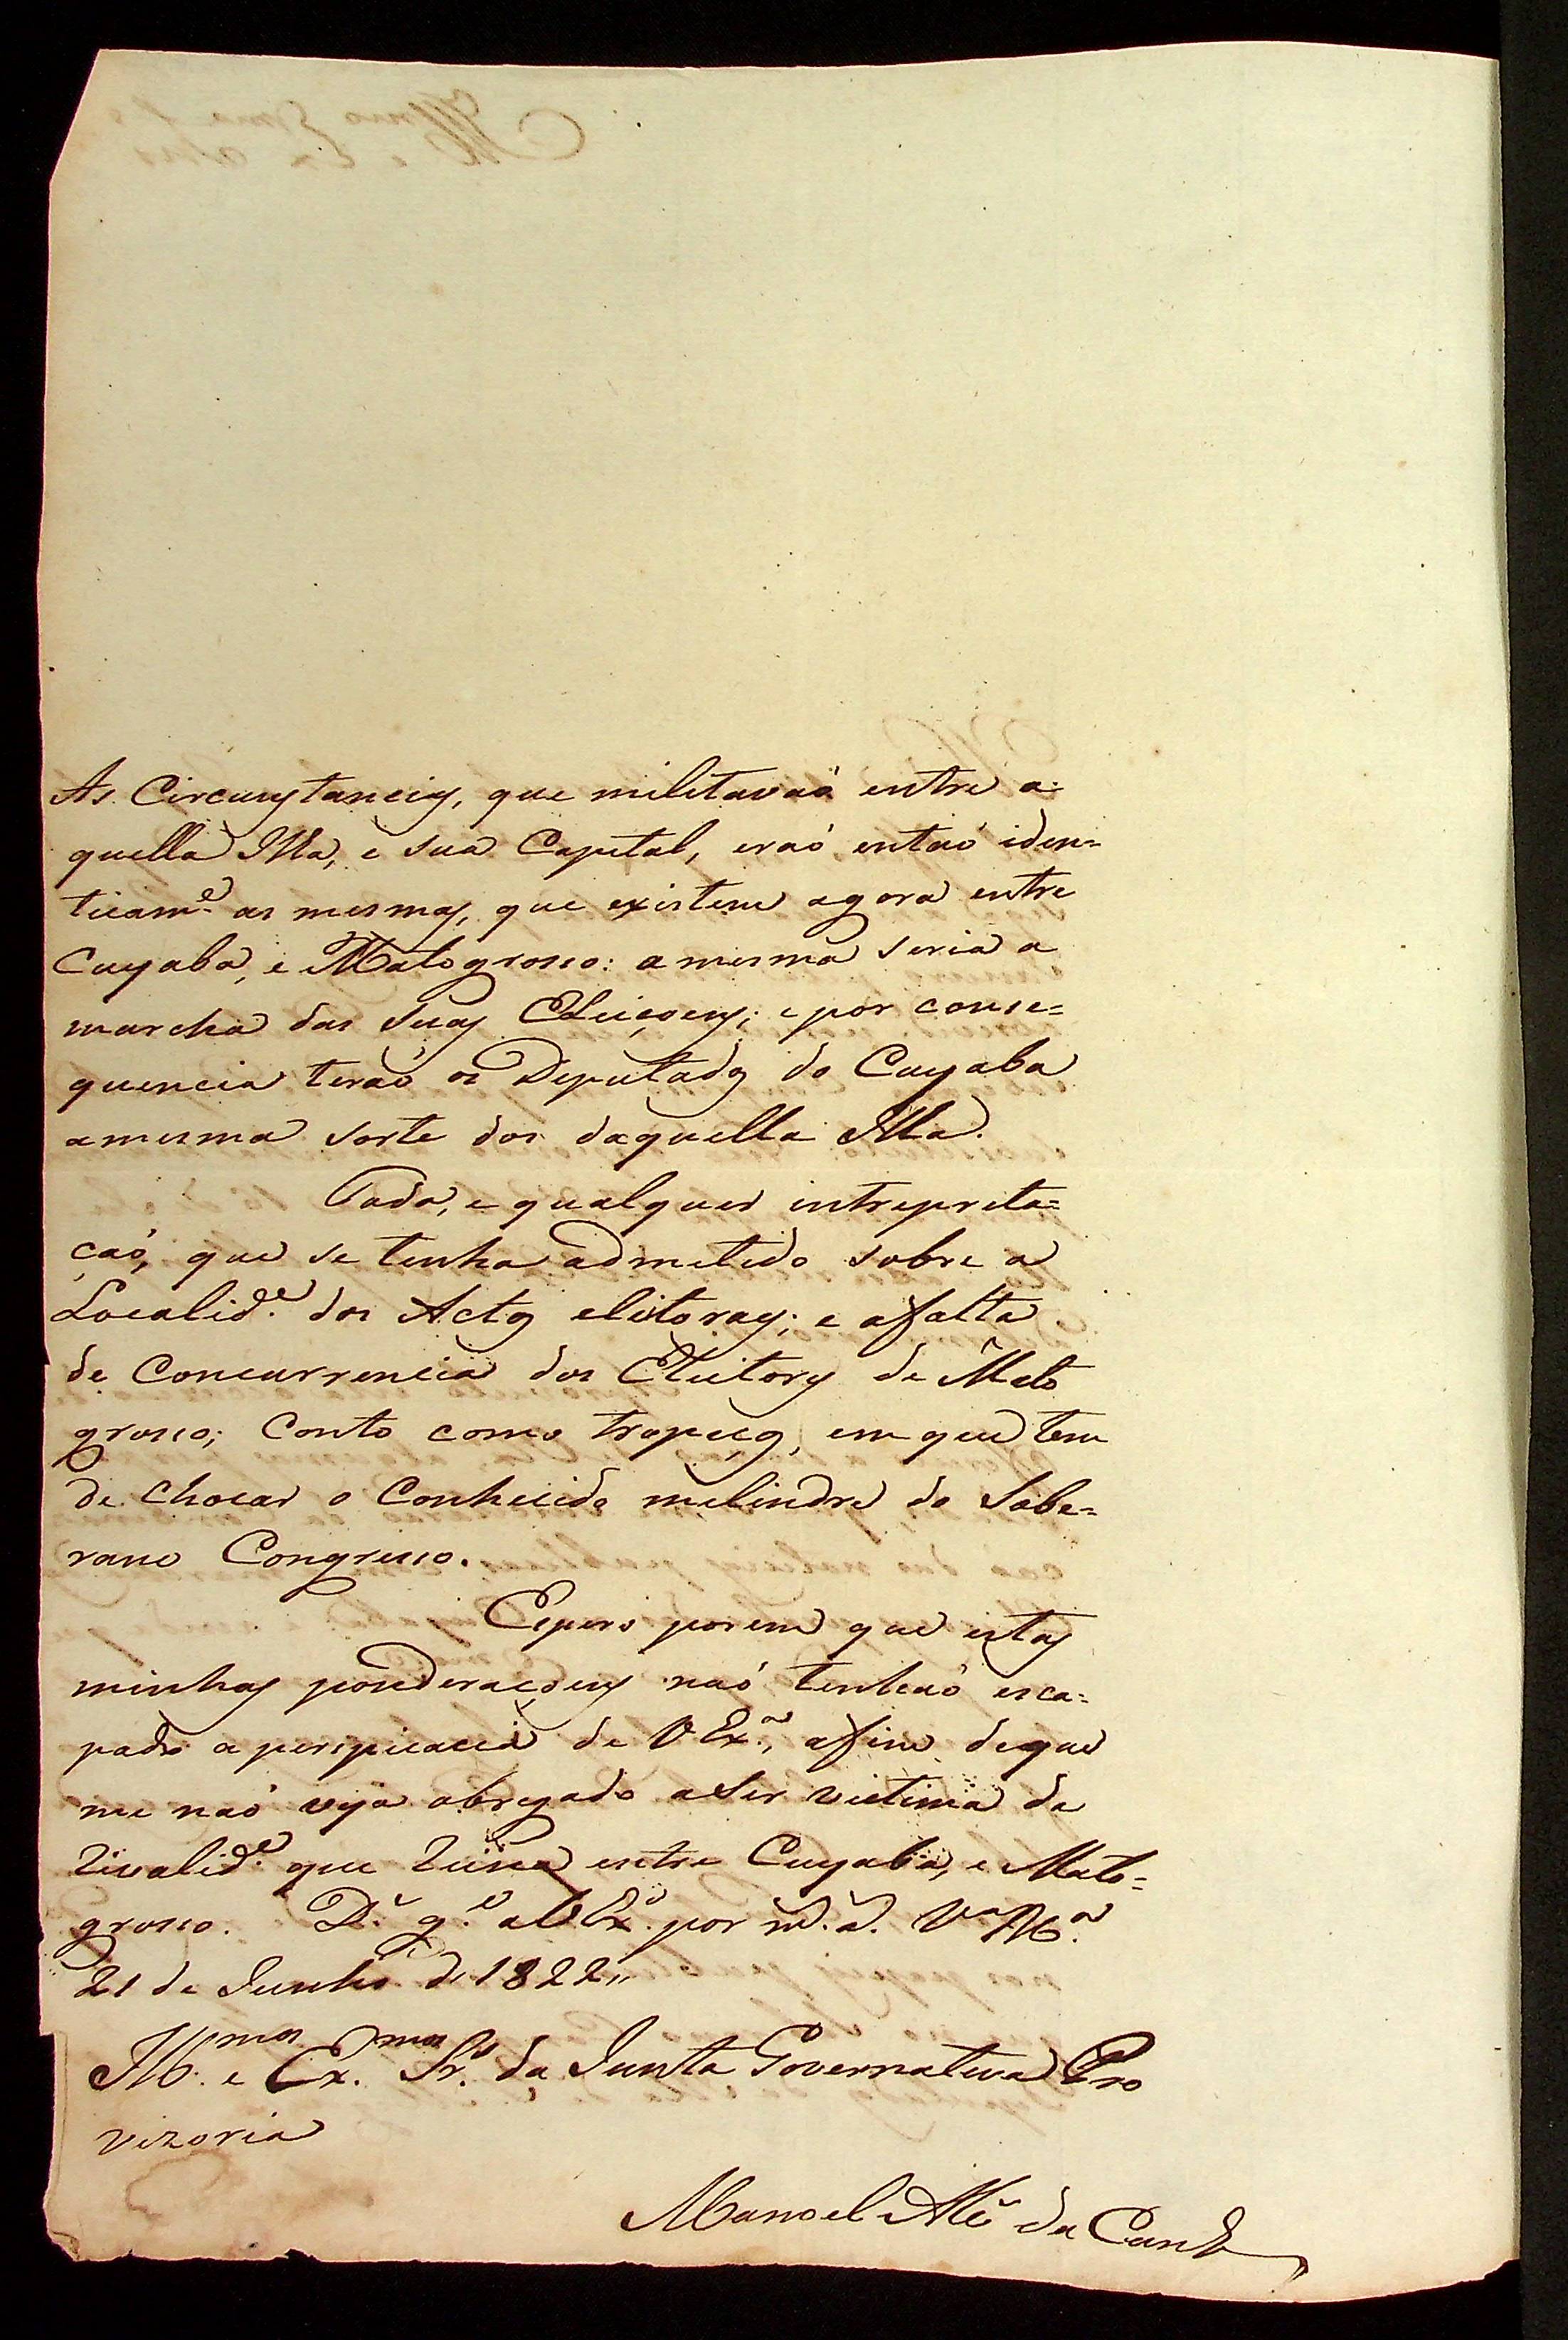 As Circunstancias, que militavaõ entre a=
quella Ilha, e sua Capital, eraõ entaõ iden=
ticam.e as mesmas, que existem agora entre
Cuyaba, e Matogrosso: a mesma seria a
marcha das suas Eleiçoens; e por conse=
quencia teraõ os Deputados do Cuyaba
a mesma sorte dos daquella Ilha.
Toda, e qualquer intrepreta=
çaõ, que se tenha admetido sobre a
Localid.e dos Actos elitoraes; e a falta
de Concurrencia dos Eleitores de Mato
grosso; Conto como tropeços, em que tem
de chocar o Conhecido melindre do Sobe=
rano Congresso.
Espero porem que estas
minhas ponderaçoens naõ tenhaõ esca=
pado a perspicacia de V Ex.a, afim de que
me naõ veja obregado a ser victima da
rivalid.e que reina entre Cuyaba, e Mato=
grosso. D.s g.e a V Ex.a por m.s a.s V.a M.a
21 de Junho de 1822
Ill.mos e Ex.mos Sr.s da Junta Governativa Pro
vizoria
Manoel Alz da Cunha